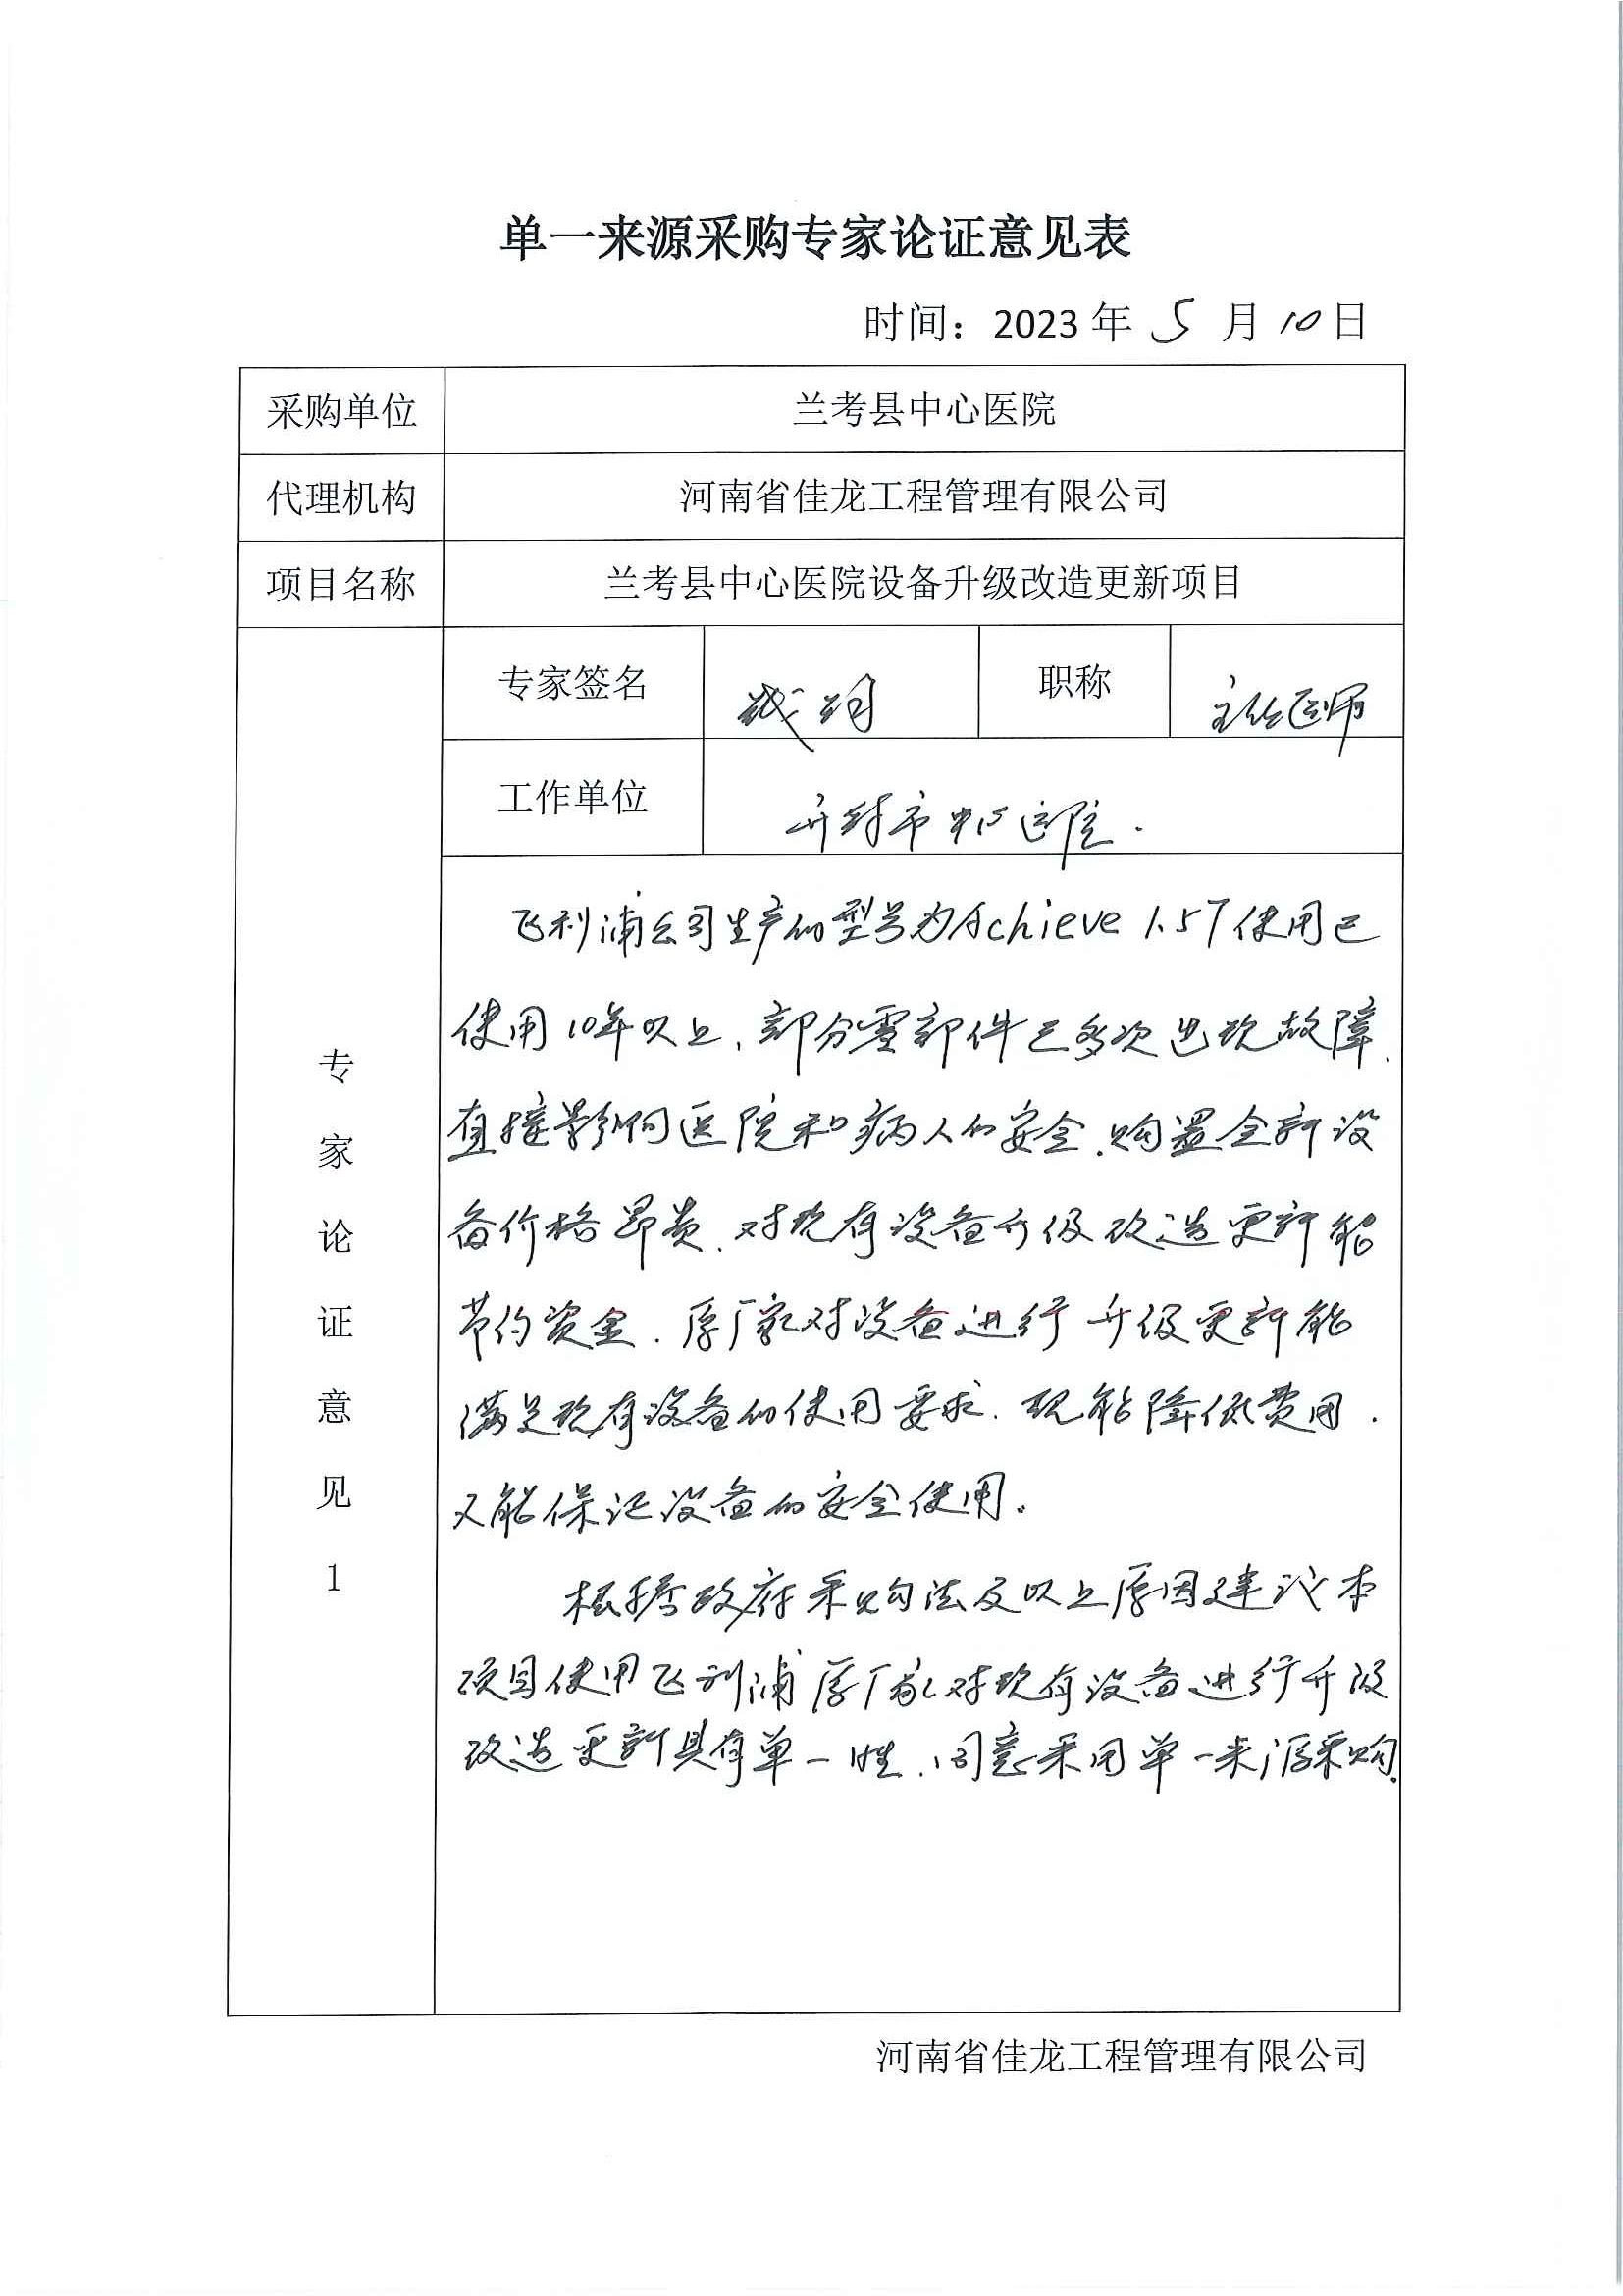 单一来源采购专家论证意见表
时间：2023 年 5 月 10 日
采购单位 兰考县中心医院
代理机构 河南省佳龙工程管理有限公司
项目名称 兰考县中心医院设备升级改造更新项目
专家签名 职称 主任医师
工作单位 开封市中心医院.
专家论证意见1
飞利浦公司生产的型号为Achieve 1.5T使用已
使用10年以上、部分零部件已多次出现故障、
直接影响医院和病人的安全、购置全新设
备价格昂贵、对现有设备升级改造更新能
节约资金、原厂家对设备进行升级更新能
满足现有设备的使用要求、既能降低费用、
又能保证设备的安全使用。
根据政府采购法及以上原因建议本
项目使用飞利浦原厂家对现有设备进行升级
改造更新具有单一性、同意采用单一来源采购、
河南省佳龙工程管理有限公司